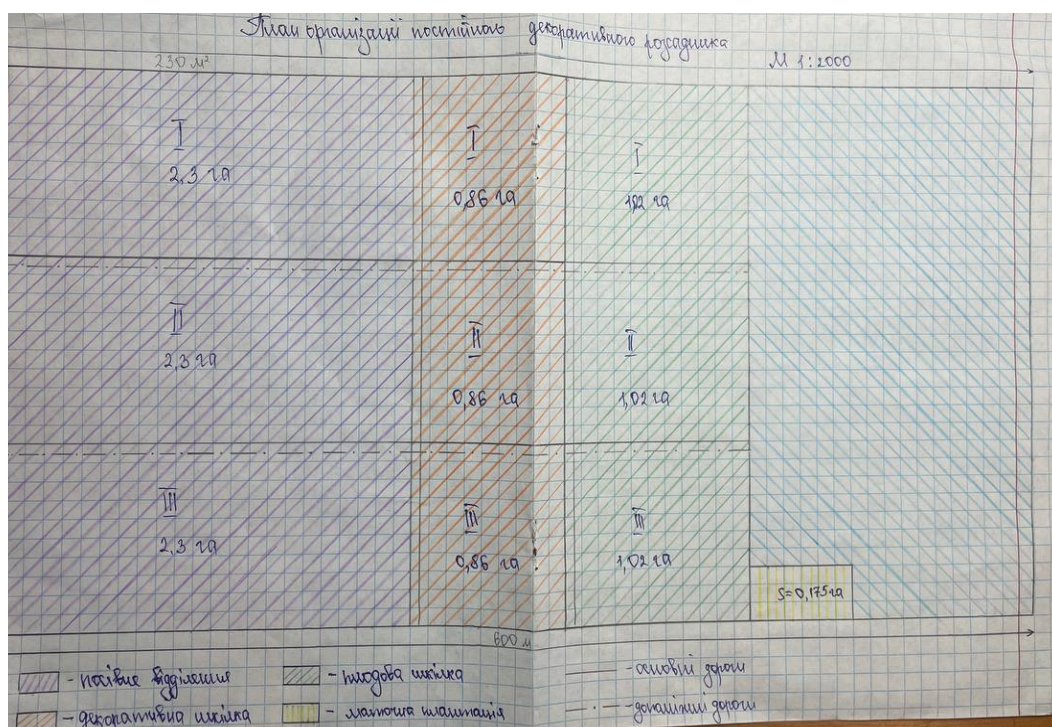 План організації постійного декоративного розсадника
230 м² М 1:2000
I I I
2,3 га 0,86 га 1,02 га
II II II
2,3 га 0,86 га 1,02 га
III III III
2,3 га 0,86 га 1,02 га
S=0,175 га
600 м
- посівне відділення - плодова шкілка - основні дороги
- декоративна шкілка - маточна плантація - допоміжні дороги